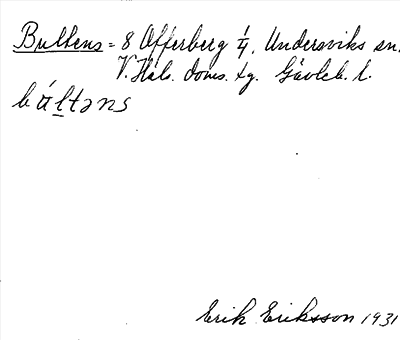 Bultens = 8 Offerberg 1/4, Undersviks sn.
V. Häls. doms. tg. Gävleb. l.
búltəns
Erik Eriksson 1931